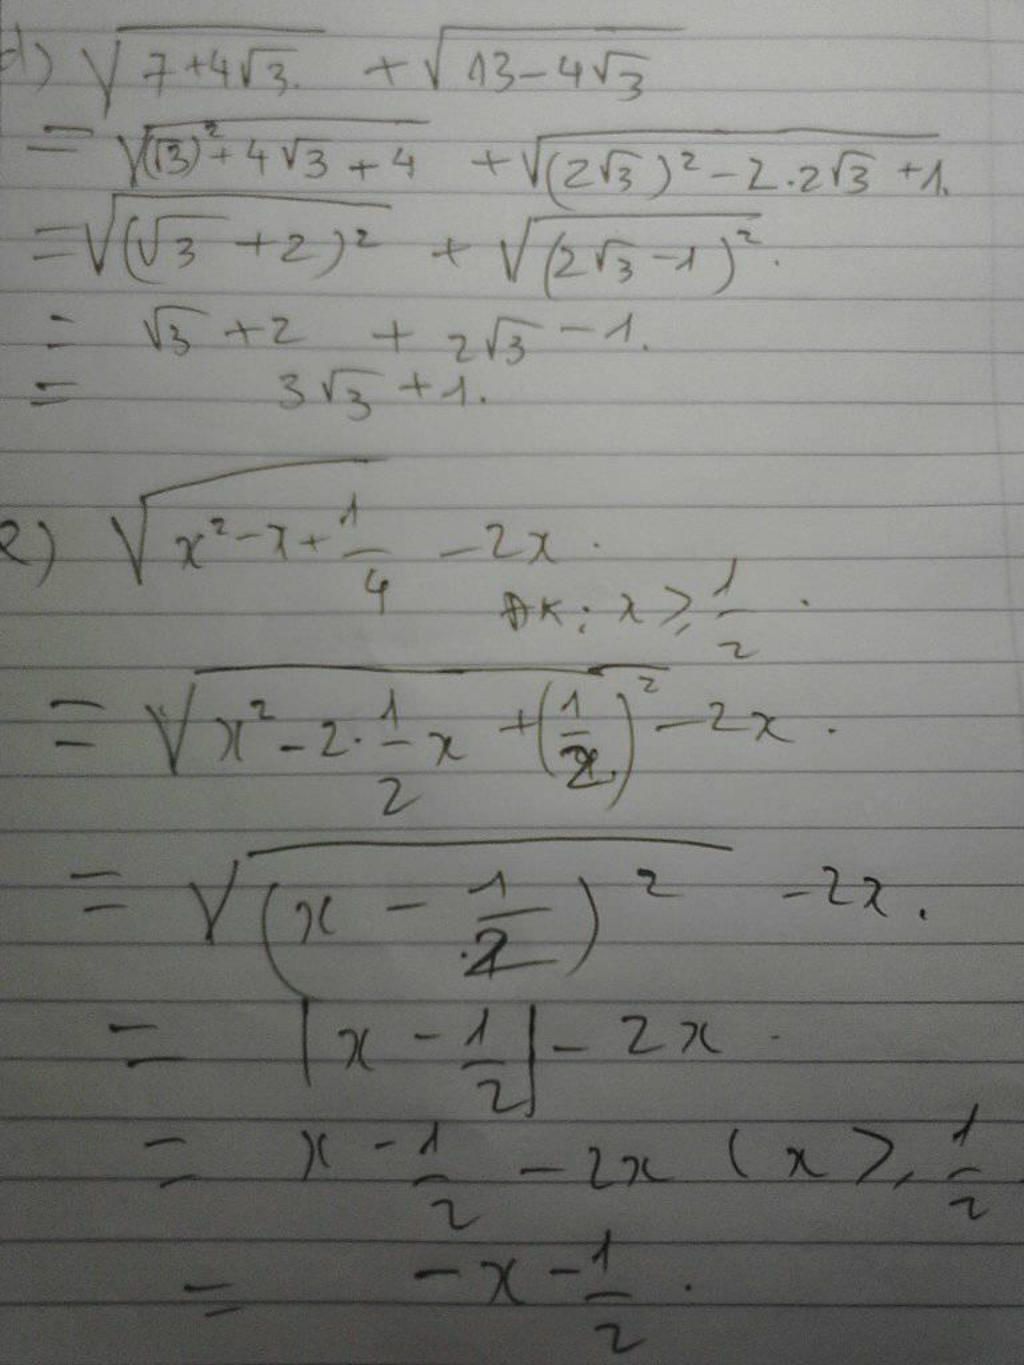 d) √(7+4√3) + √(13-4√3)
= √((√3)²+4√3+4) + √((2√3)²-2.2√3+1.)
= √((√3+2)²) + √((2√3-1)²).
= √3+2 + 2√3-1.
= 3√3+1.
e) √(x²-x+1/4) -2x.
ĐK: x ≥ 1/2.
= √(x²-2.1/2x+(1/2)²) -2x.
= √((x-1/2)²) -2x.
= |x-1/2| -2x.
= x-1/2-2x (x ≥ 1/2
= -x-1/2.